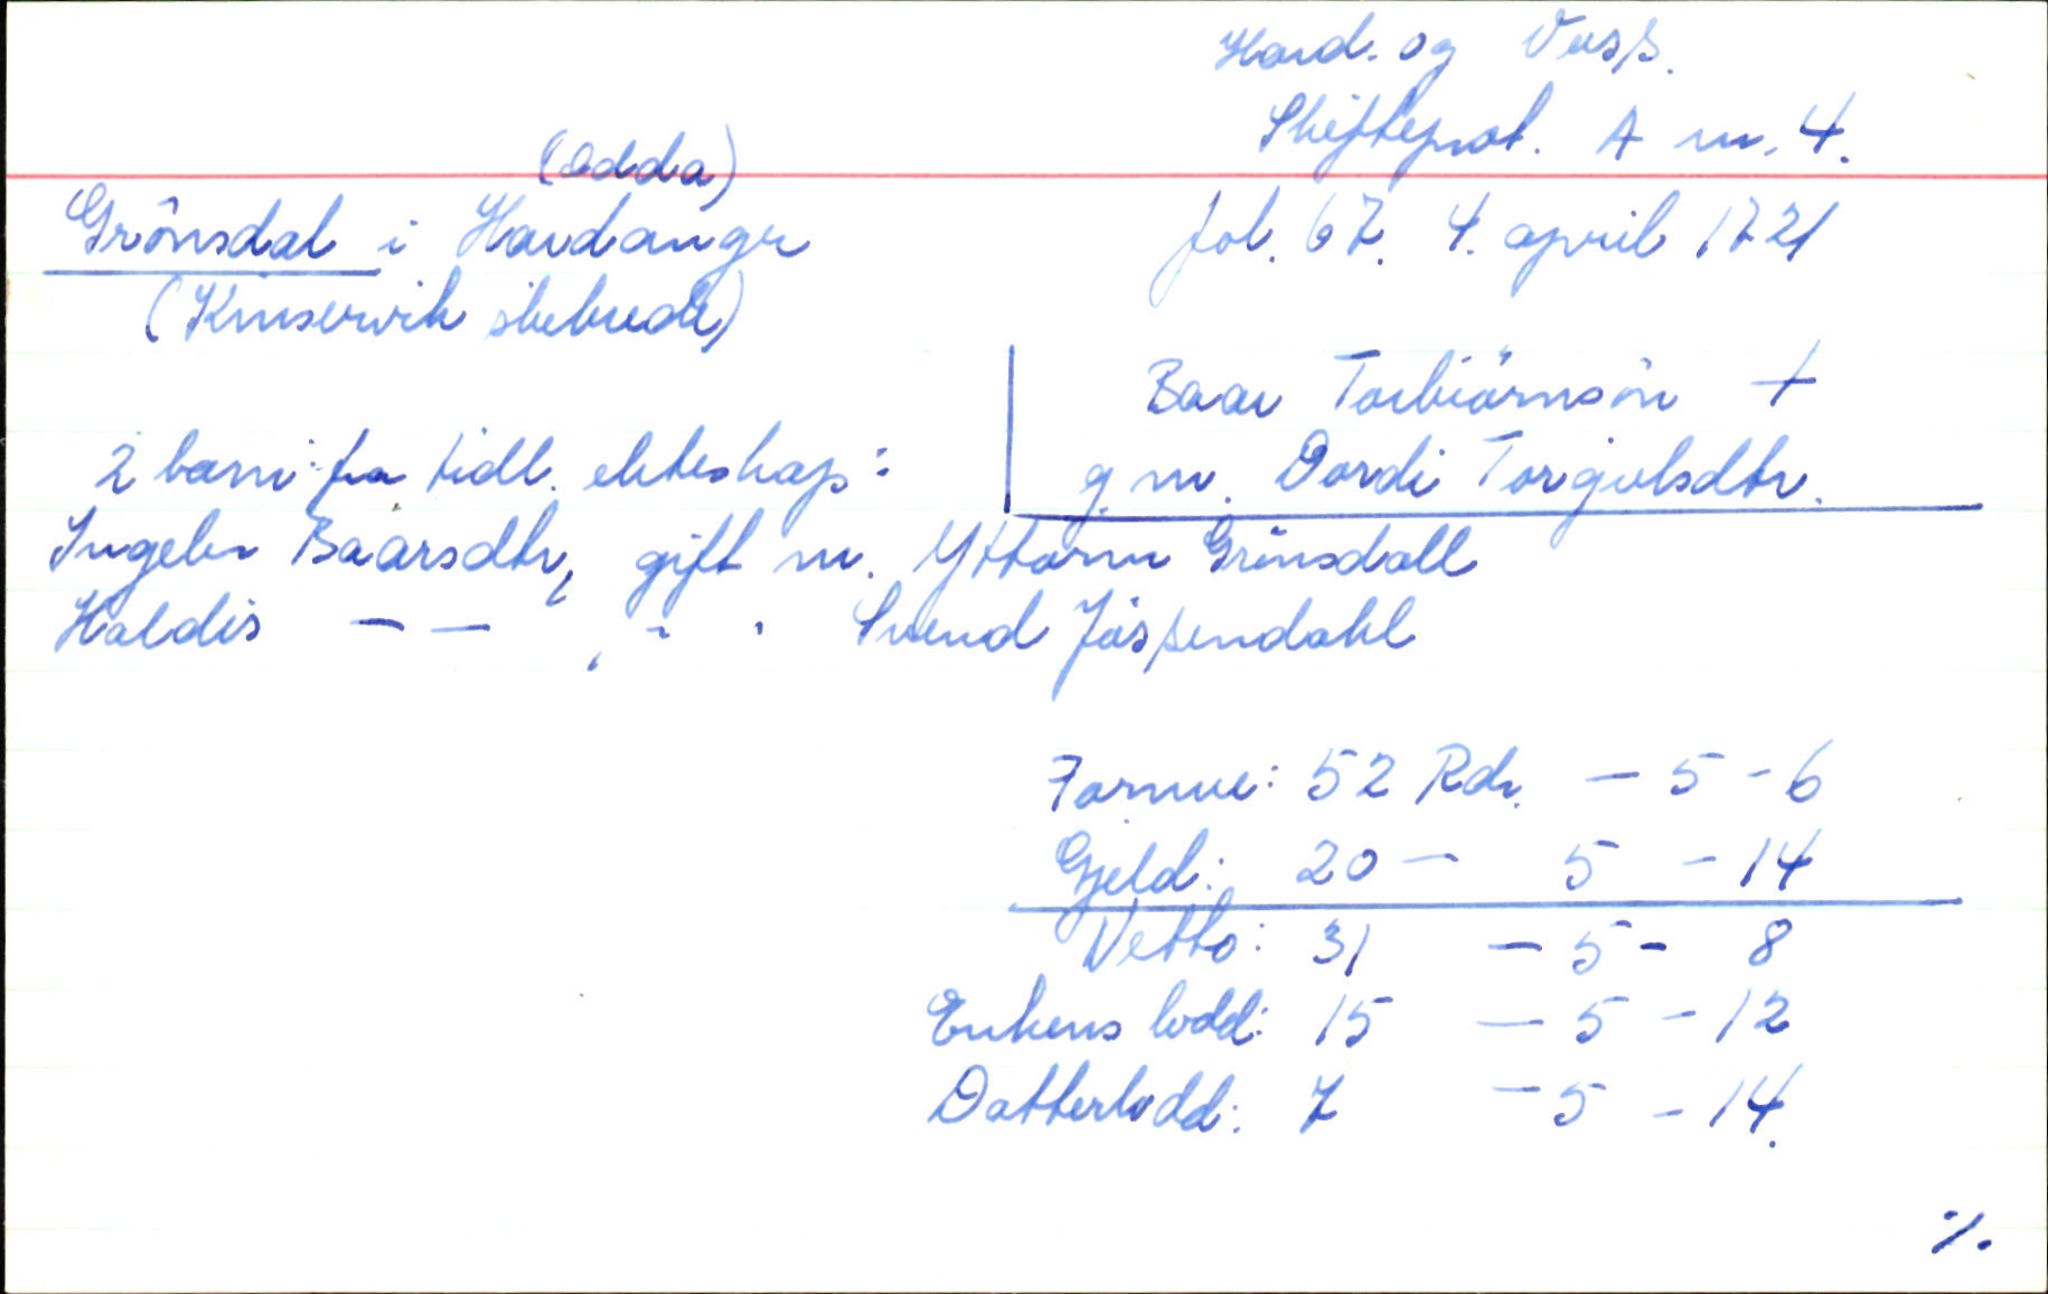 Hard. og Voss.
Skifteprot. A nr. 4.
(Odda)
Grönsdal i Hardanger
fol. 67. 4. april 1721
(Kinservik skibrede)
Baar Torbiörnsön +
g. m. Dordi Torgielsdtr.
2 barn fra tidl. ekteskap:
Ingebr Baarsdtr, gift m. Yttorm Grönsdall
Haldis — — , - . Svend Jössendahl
Formue: 52 Rdr. — 5 - 6
Gjeld: 20 — 5 - 14
Netto: 31 — 5 - 8
Enkens lodd: 15 — 5 - 12
Datterlodd: 7 — 5 - 14.
./.